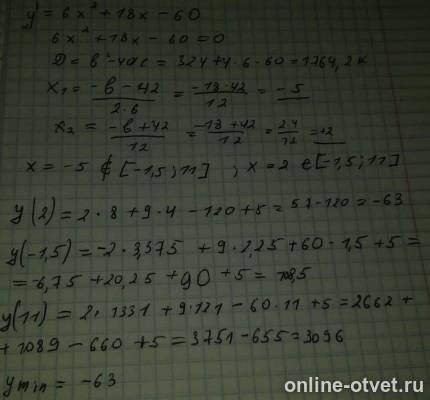 y' = 6x² + 18x - 60
6x² + 18x - 60 = 0
D = b² - 4ac = 324 + 4·6·60 = 1764, 2 к
x₁ = (-b - 42)/(2·6) = (-18-42)/12 = -5
x₂ = (-b + 42)/12 = (-18 + 42)/12 = 24/12 = +2
x = -5 ∉ [-1,5; 11] ; x = 2 ∈ [-1,5; 11]
y(2) = 2·8 + 9·4 - 120 + 5 = 57 - 120 = -63
y(-1,5) = -2·3,375 + 9·2,25 + 60·1,5 + 5 =
= -6,75 + 20,25 + 90 + 5 = 108,5
y(11) = 2·1331 + 9·121 - 60·11 + 5 = 2662 +
+ 1089 - 660 + 5 = 3751 - 655 = 3096
y min = -63
online-otvet.ru